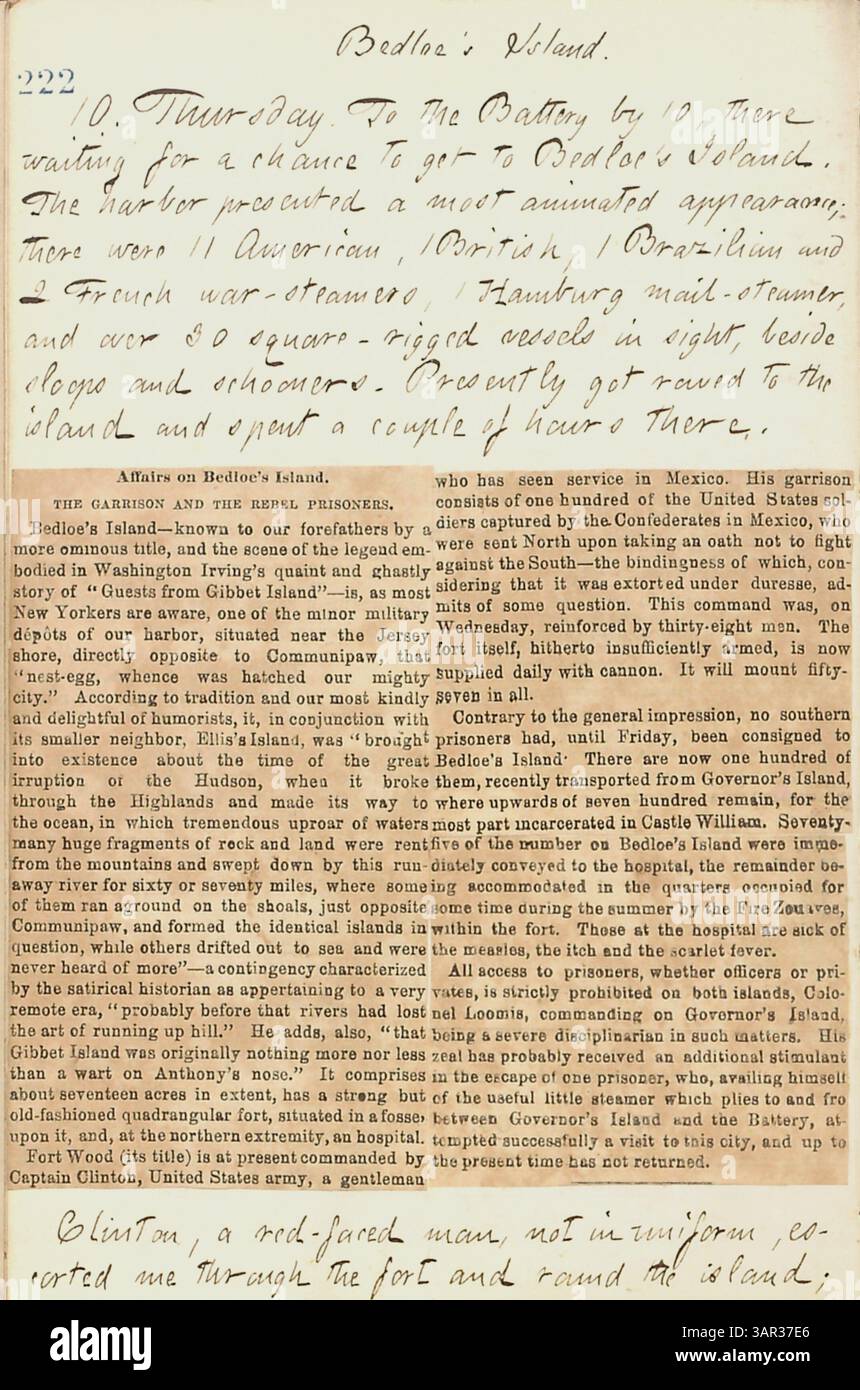 Bedloe's Island.
222
10. Thursday. To the Battery by 10, there
waiting for a chance to get to Bedloe's Island.
The harbor presented a most animated appearance;
there were 11 American, 1 British, 1 Brazilian and
2 French war-steamers, 1 Hamburg mail-steamer,
and over 30 square-rigged vessels in sight, beside
sloops and schooners. Presently got rowed to the
island and spent a couple of hours there.
Affairs on Bedloe's Island.
THE GARRISON AND THE REBEL PRISONERS.
Bedloe's Island—known to our forefathers by a
more ominous title, and the scene of the legend em-
bodied in Washington Irving's quaint and ghastly
story of "Guests from Gibbet Island"—is, as most
New Yorkers are aware, one of the minor military
dépôts of our harbor, situated near the Jersey
shore, directly opposite to Communipaw, that
"nest-egg, whence was hatched our mighty
city." According to tradition and our most kindly
and delightful of humorists, it, in conjunction with
its smaller neighbor, Ellis's Island, was "brought
into existence about the time of the great
irruption of the Hudson, when it broke
through the Highlands and made its way to
the ocean, in which tremendous uproar of waters
many huge fragments of rock and land were rent
from the mountains and swept down by this run-
away river for sixty or seventy miles, where some
of them ran aground on the shoals, just opposite
Communipaw, and formed the identical islands in
question, while others drifted out to sea and were
never heard of more"—a contingency characterized
by the satirical historian as appertaining to a very
remote era, "probably before that rivers had lost
the art of running up hill." He adds, also, "that
Gibbet Island was originally nothing more nor less
than a wart on Anthony's nose." It comprises
about seventeen acres in extent, has a strong but
old-fashioned quadrangular fort, situated in a fosse,
upon it, and, at the northern extremity, an hospital.
Fort Wood (its title) is at present commanded by
Captain Clinton, United States army, a gentleman
who has seen service in Mexico. His garrison
consists of one hundred of the United States sol-
diers captured by the Confederates in Mexico, who
were sent North upon taking an oath not to fight
against the South—the bindingness of which, con-
sidering that it was extorted under duresse, ad-
mits of some question. This command was, on
Wednesday, reinforced by thirty-eight men. The
fort itself, hitherto insufficiently armed, is now
supplied daily with cannon. It will mount fifty-
seven in all.
Contrary to the general impression, no southern
prisoners had, until Friday, been consigned to
Bedloe's Island. There are now one hundred of
them, recently transported from Governor's Island,
where upwards of seven hundred remain, for the
most part incarcerated in Castle William. Seventy-
five of the number on Bedloe's Island were imme-
diately conveyed to the hospital, the remainder be-
ing accommodated in the quarters occupied for
some time during the summer by the Fire Zouaves,
within the fort. Those at the hospital are sick of
the measles, the itch and the scarlet fever.
All access to prisoners, whether officers or pri-
vates, is strictly prohibited on both islands, Colo-
nel Loomis, commanding on Governor's Island,
being a severe disciplinarian in such matters. His
zeal has probably received an additional stimulant
in the escape of one prisoner, who, availing himself
of the useful little steamer which plies to and fro
between Governor's Island and the Battery, at-
tempted successfully a visit to this city, and up to
the present time has not returned.
Clinton, a red-faced man, not in uniform, es-
corted me through the fort and round the island;
alamy
Image ID: 3AR37E6
www.alamy.com